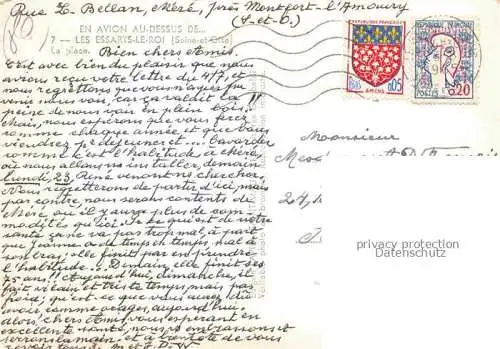 Rue L. Bellan, Méré, près Montfort-l'Amaury
(S-et-O.)
EN AVION AU-DESSUS DE...
7 — LES ESSARTS-LE-ROI (Seine-et-Oise)
La place.
Bien chers Amis.
C'est avec bien du plaisir que nous
avions reçu votre lettre du 4/7, et nous
regrettons que vous n'ayez pu
venir nous voir, car ça valait la
peine de nous voir en plein bois
Mais, nous espérons que vous ferez
comme chaque année, et que vous
viendrez déjeuner et... bavarder
comme c'est l'habitude à Méré,
où nous allons nous installer, demain
lundi, 23. René venant nous chercher.
Nous regretterons de partir d'ici, mais
par contre, nous serons contents de
Méré, où il y aura plus de com-
modités qu'ici. Pour ce qui est de notre
santé ça ne va pas trop mal, à part
que Jeanne a de temps en temps, mal à
son bras; elle finit par en prendre
l'habitude... Demain, elle finit ses
75 ans!! Aujourd'hui, dimanche, il
fait vilain et triste temps, mais pas
froid; qu'est-ce que vous aurez dû
avoir comme orages, aujourd'hui.
Alors, chers Amis, vous espérant en
excellente santé, nous vous embrassons et
serrons la main, et à bientôt de vous
revoir tous.
REPUBLIQUE FRANÇAISE
POSTES
0,05
AMIENS
0,20
POSTES
Monsieur
24,
privacy protection
Datenschutz